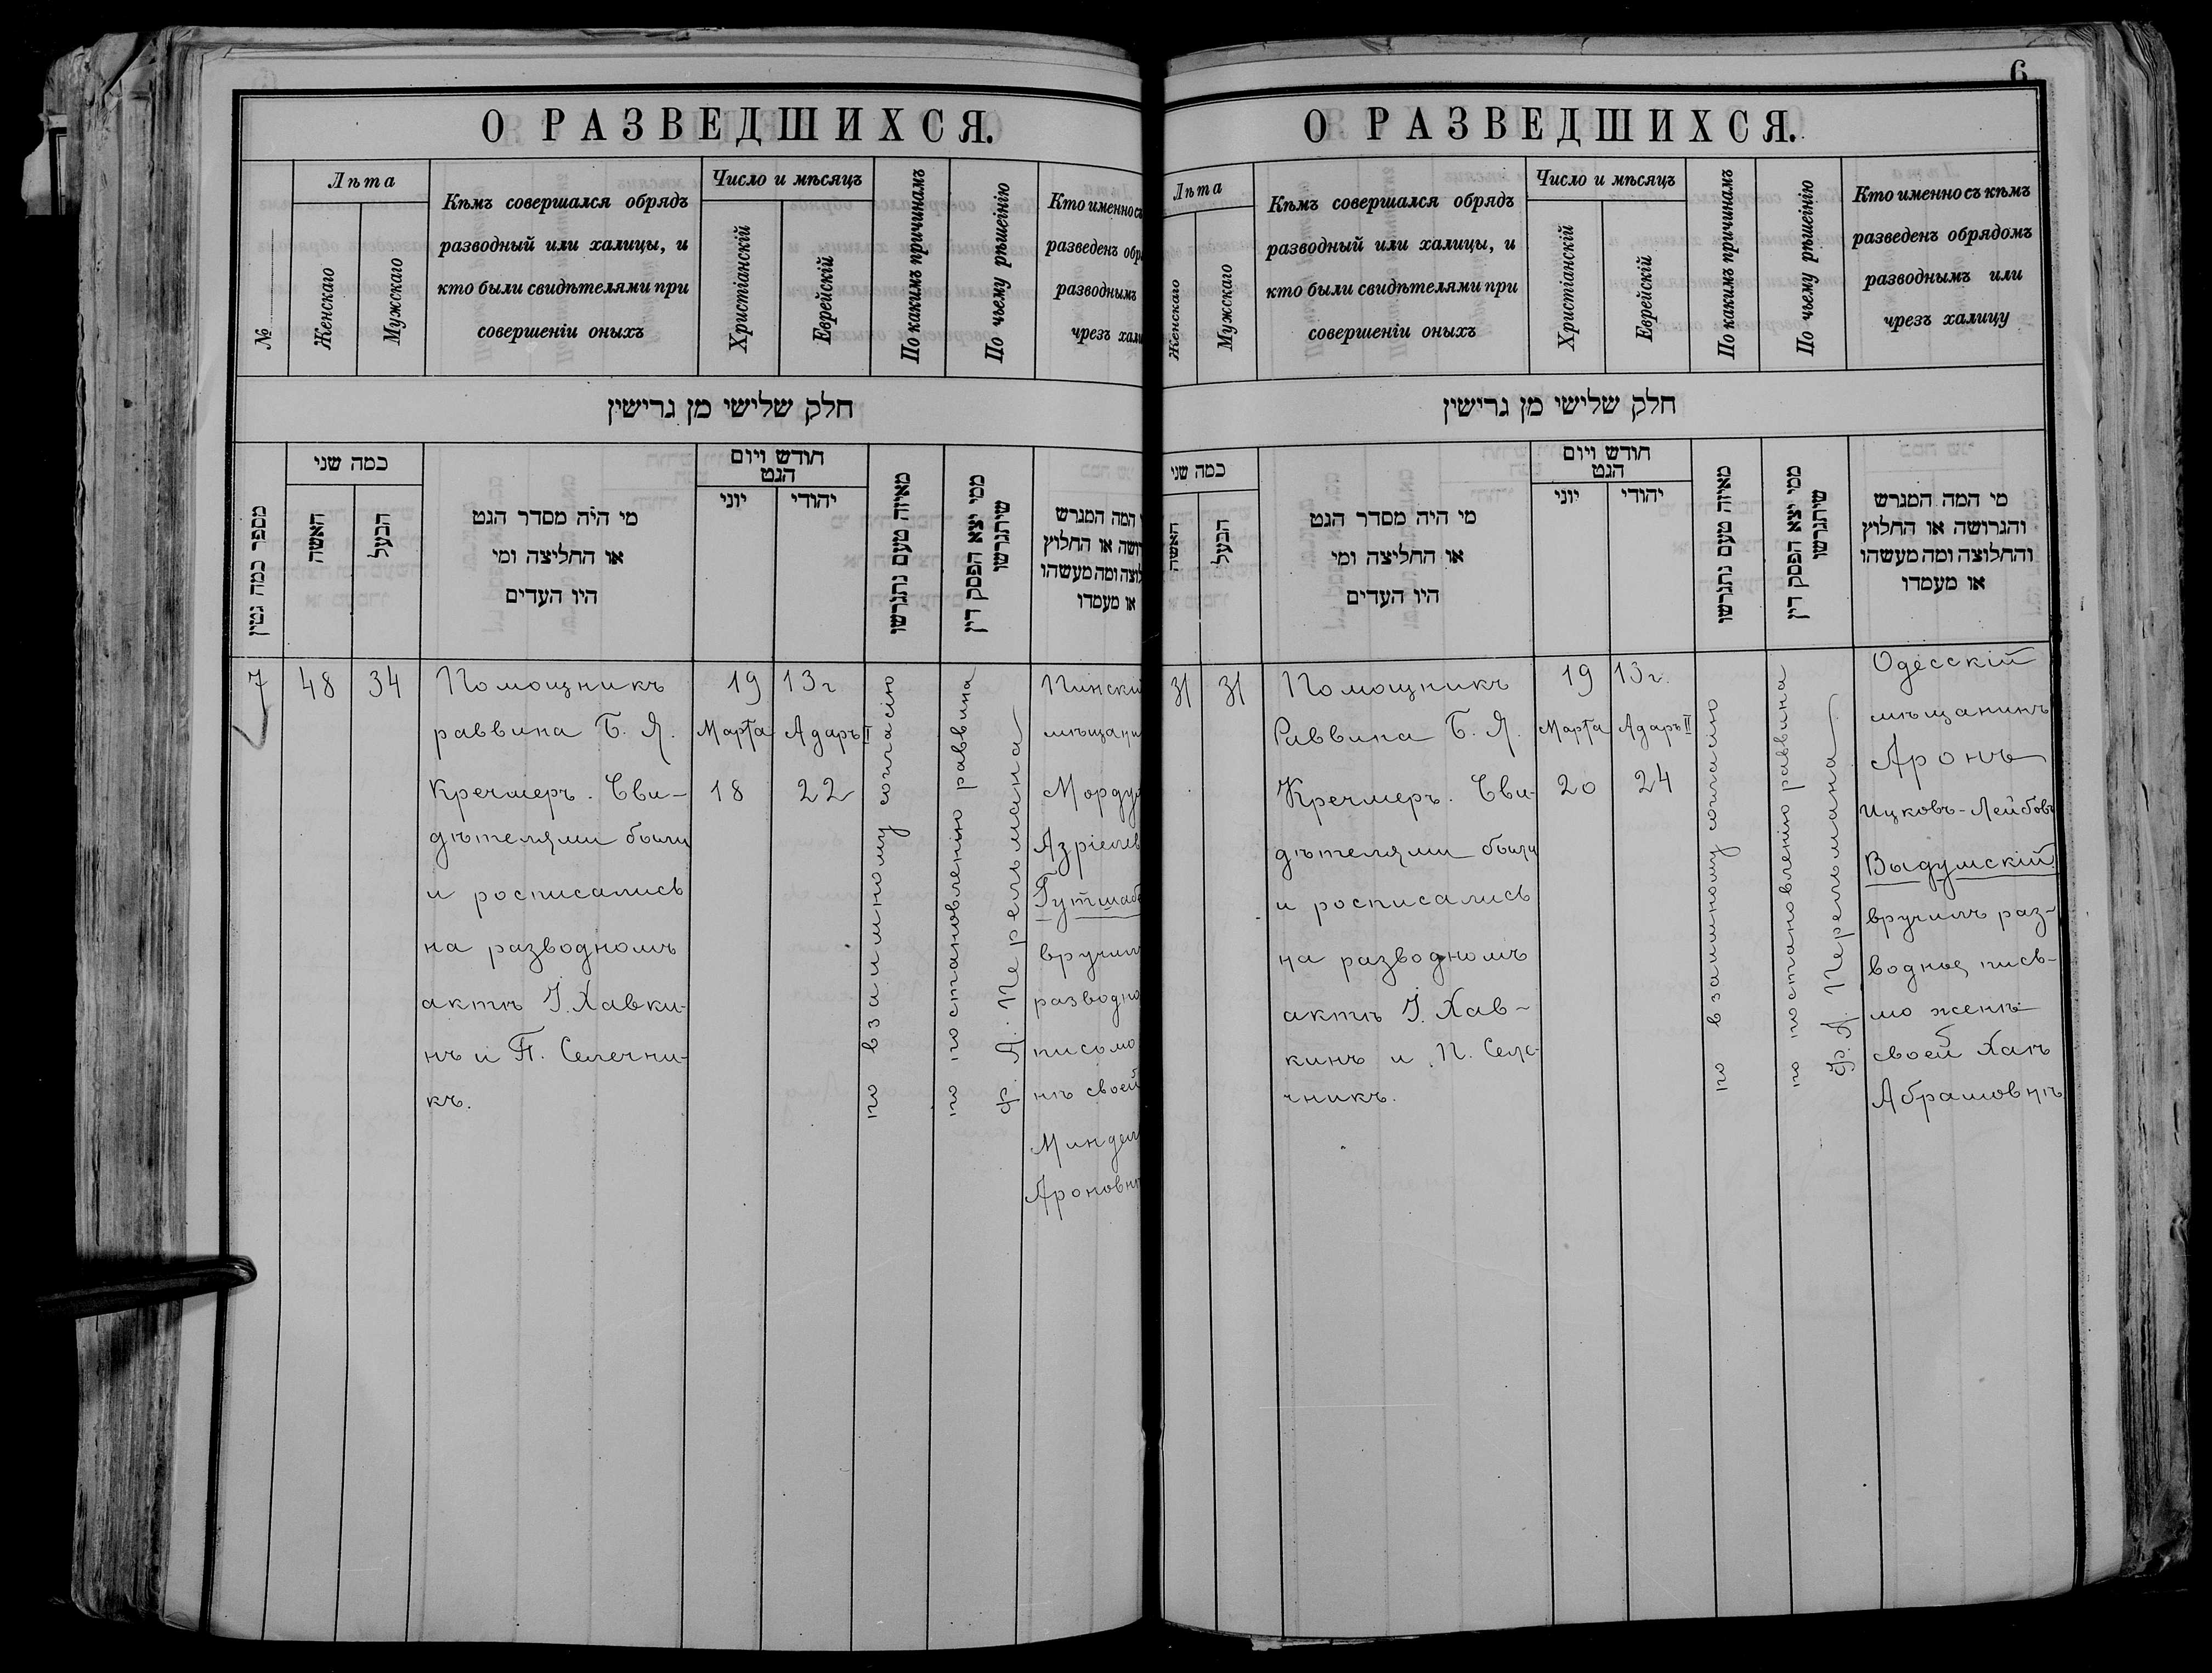 О РАЗВЕДШИХСЯ.
№
Лѣта
Женскаго
Мужскаго
Кѣмъ совершался обрядъ
разводный или халицы, и
кто были свидѣтелями при
совершеніи оныхъ
Число и мѣсяцъ
Христіанскій
Еврейскій
По какимъ причинамъ
По чьему рѣшеінію
Кто именно съ
разведенъ обр
разводнымъ
чрезъ хали
חלק שלישי מן גרישין
מספר כמה גטין
כמה שני
האשה
הבעל
מי היה מסדר הגט
או החליצה ומי
היו העדים
חודש ויום
הגט
יוני
יהודי
מאיזה טעם נתגרשו
ממי יצא הפסק דין
שיתגרשו
המה המגרש
רושה או החלוץ
לוצה ומה מעשהו
או מעמדו
7
48
34
Помощникъ
раввина Б. Я.
Кречмеръ. Сви-
дѣтелями были
и росписались
на разводномъ
актѣ I. Хавки-
нъ и П. Селечни-
къ.
19
Марта
18
13 г
Адаръ II
22
по взаимному согласію
по постановленію раввина
Ф. Л. Перельмана
Пински
мѣщани
Морду
Азріелев
Гутшаб
вручил
разводно
письмо
нѣ своей
Миндел
Ароновн
О РАЗВЕДШИХСЯ.
6
Лѣта
Женскаго
Мужскаго
Кѣмъ совершался обрядъ
разводный или халицы, и
кто были свидѣтелями при
совершеніи оныхъ
Число и мѣсяцъ
Христіанскій
Еврейскій
По какимъ причинамъ
По чьему рѣшеінію
Кто именно съ кѣмъ
разведенъ обрядомъ
разводнымъ или
чрезъ халицу
חלק שלישי מן גרישין
כמה שני
האשה
הבעל
מי היה מסדר הגט
או החליצה ומי
היו העדים
חודש ויום
הגט
יוני
יהודי
מאיזה טעם נתגרשו
ממי יצא הפסק דין
שיתגרשו
מי המה המגרש
והגרושה או החלוץ
והחלוצה ומה מעשהו
או מעמדו
31
31
Помощникъ
Раввина Б. Я.
Кречмеръ. Сви-
дѣтелями были
и росписались
на разводномъ
актѣ I. Хав-
кинъ и П. Селе-
чникъ.
19
Марта
20
13 г.
Адаръ II
24
по взаимному согласію
по постановленію раввина
Ф. Л. Перельмана
Одесскій
мѣщанинъ
Аронъ
Ицковъ-Лейбовъ
Выдумскій
вручилъ раз-
водное пись-
мо женѣ
своей Ханѣ
Абрамовнѣ